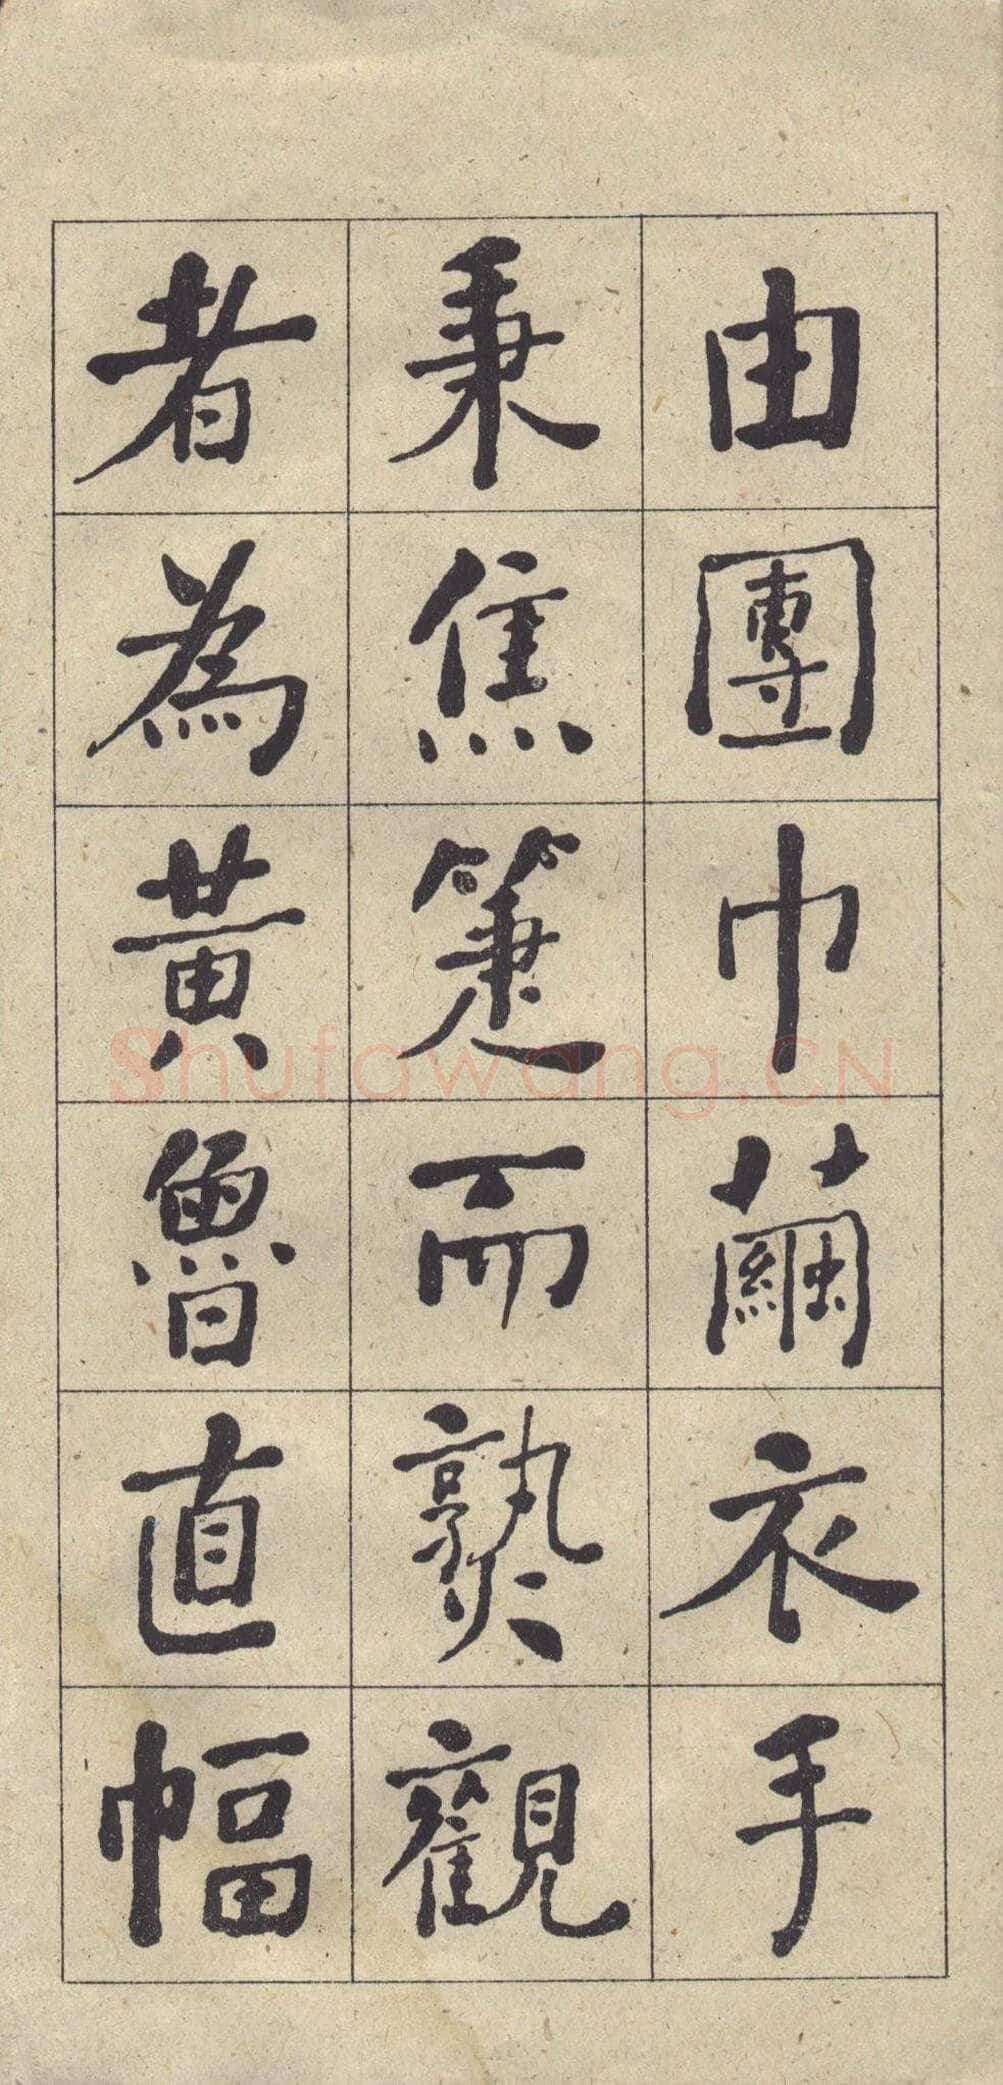 由團巾繭衣手
秉焦箑而熟觀
者為黃魯直幅
Shufawang.CN